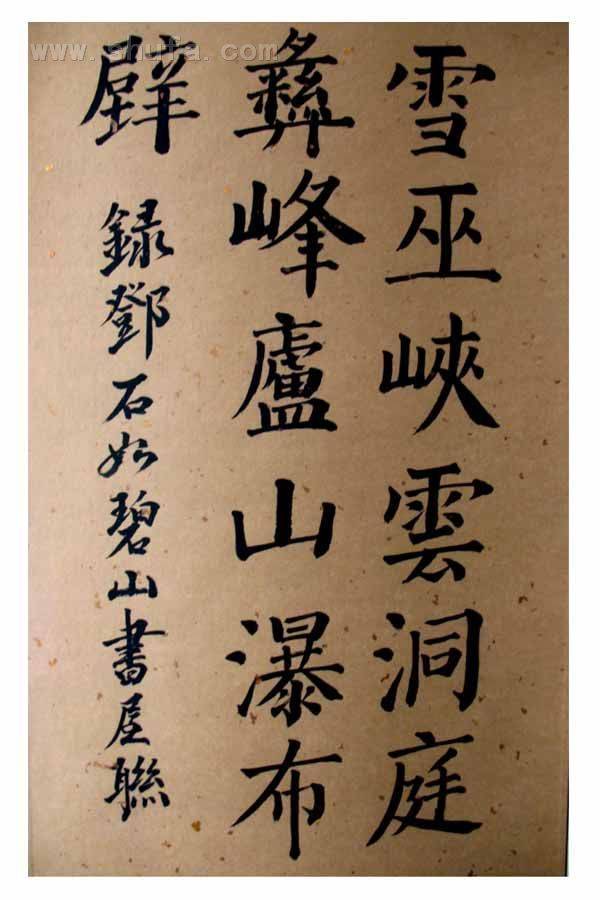 雪巫峽雲洞庭
彝峰廬山瀑布
壁
録鄧石如碧山書屋聯
www.shufa.com